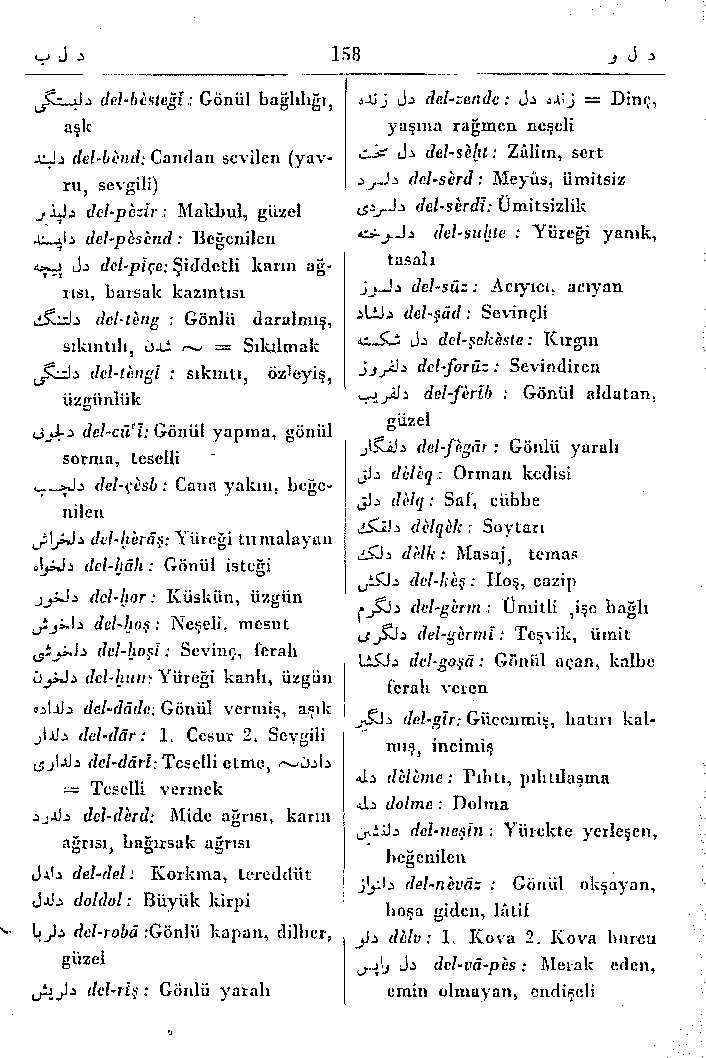 د ل ب
158
د ل و
دلبستگی del-bèsteğī: Gönül bağlılığı,
aşk
دلبند del-bènd: Candan sevilen (yav-
ru, sevgili)
دلپذیر del-pèzīr: Makbul, güzel
دلپسند del-pèsènd: Beğenilen
دل پیچه del-pīçe: Şiddetli karın ağ-
rısı, barsak kazıntısı
دلتنگ del-tèng : Gönlü daralmış,
sıkıntılı, شدن ~ = Sıkılmak
دلتنگی del-tèngī : sıkıntı, özleyiş,
üzgünlük
دلجوئی del-cū'ī: Gönül yapma, gönül
sorma, teselli
دلچسب del-çèsb: Cana yakın, beğe-
nilen
دلخراش del-ḫèrāş: Yüreği tırmalayan
دلخواه del-ḫāh: Gönül isteği
دلخور del-ḫor: Küskün, üzgün
دلخوش del-ḫoş: Neşeli, mesut
دلخوشی del-ḫoşī: Sevinç, ferah
دلخون del-ḫun: Yüreği kanlı, üzgün
دلداده del-dāde: Gönül vermiş, aşık
دلدار del-dār: 1. Cesur 2. Sevgili
دلداری del-dārī: Teselli etme, دادن~
= Teselli vermek
دلدرد del-dèrd: Mide ağrısı, karın
ağrısı, bağırsak ağrısı
دلدل del-del: Korkma, tereddüt
دلدل doldol: Büyük kirpi
دلربا del-robā :Gönlü kapan, dilber,
güzel
دلریش del-rīş: Gönlü yaralı
دل زنده del-zende: زنده دل = Dinç,
yaşına rağmen neşeli
دل سخت del-sèḫt: Zâlim, sert
دلسرد del-sèrd: Meyûs, ümitsiz
دلسردی del-sèrdī: Ümitsizlik
دلسوخته del-suḫte : Yüreği yanık,
tasalı
دلسوز del-sūz: Acıyıcı, acıyan
دلشاد del-şād: Sevinçli
دل شکسته del-şekèste: Kırgın
دلفروز del-forūz: Sevindiren
دلفریب del-fèrīb : Gönül aldatan,
güzel
دلفگار del-fègār: Gönlü yaralı
دلق dèlèq: Orman kedisi
دلق dèlq: Saf, cübbe
دلقک dèlqèk: Soytarı
دلک dèlk: Masaj, temas
دلکش del-kèş: Hoş, cazip
دلگرم del-gèrm: Ümitli ,işe bağlı
دلگرمی del-gèrmī: Teşvik, ümit
دلگشا del-goşā: Gönül açan, kalbe
ferah veren
دلگیر del-gīr: Gücenmiş, hatırı kal-
mış, incimiş
دلمه dèlème: Pıhtı, pıhtılaşma
دلمه dolme: Dolma
دلنشین del-neşīn: Yürekte yerleşen,
beğenilen
دلنواز del-nèvāz : Gönül okşayan,
hoşa giden, lâtif
دلو dèlv: 1. Kova 2. Kova burcu
دل واپس del-vā-pès: Merak eden,
emin olmayan, endişeli